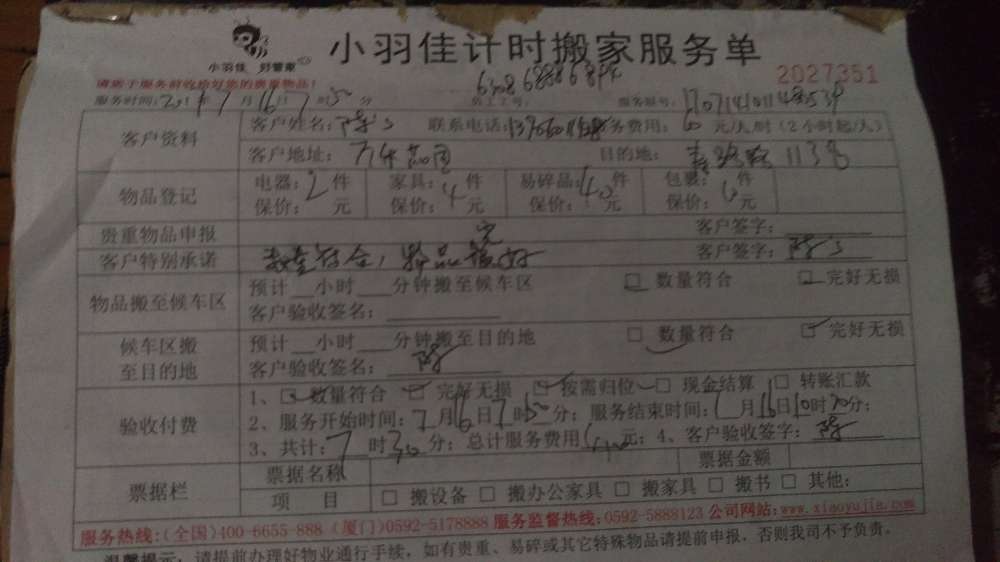 小羽佳计时搬家服务单
小羽佳 好管家
请您于服务前收拾好您的贵重物品!
2027351
服务时间: 年7月16日7时50分 员工工号: 服务账号:
客户资料 客户姓名:陈 联系电话: 服务费用:60元/人/时(2小时起/人)
客户地址: 目的地: 113号
物品登记 电器:2件 家具:4件 易碎品: 件 包裹: 件
保价: 元 保价: 元 保价: 元 保价: 元
贵重物品申报 客户签字:
客户特别承诺 数量符合,物品完好 客户签字:陈
物品搬至候车区 预计 小时 分钟搬至候车区 □ 数量符合 □ 完好无损
客户验收签名:
候车区搬至目的地 预计 小时 分钟搬至目的地 □ 数量符合 □ 完好无损
客户验收签名:陈
验收付费 1、□ 数量符合 □ 完好无损 □ 按需归位 □ 现金结算 □ 转账汇款
2、服务开始时间:7月16日7时50分;服务结束时间:7月16日10时20分;
3、共计:7时30分;总计服务费用 元;4、客户验收签字:陈
票据栏 票据名称 票据金额
项 目 □ 搬设备 □ 搬办公家具 □ 搬家具 □ 搬书 □ 其他:
服务热线:(全国)400-6655-888 (厦门)0592-5178888 服务监督热线:0592-5888123 公司网站:www.xiaoyujia.com
温馨提示:请提前办理好物业通行手续,如有贵重、易碎或其它特殊物品请提前申报,否则我司不予负责。